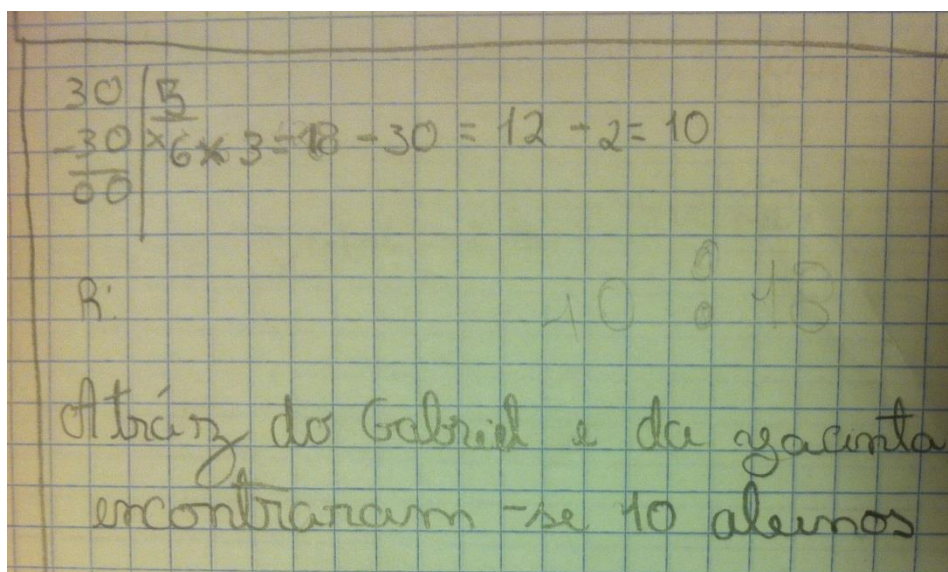 30 5
-30 ×6 × 3 = 18 - 30 = 12 - 2 = 10
00
R:
10 : 18
Atráz do Gabriel e da yacinta
encontraram-se 10 alunos